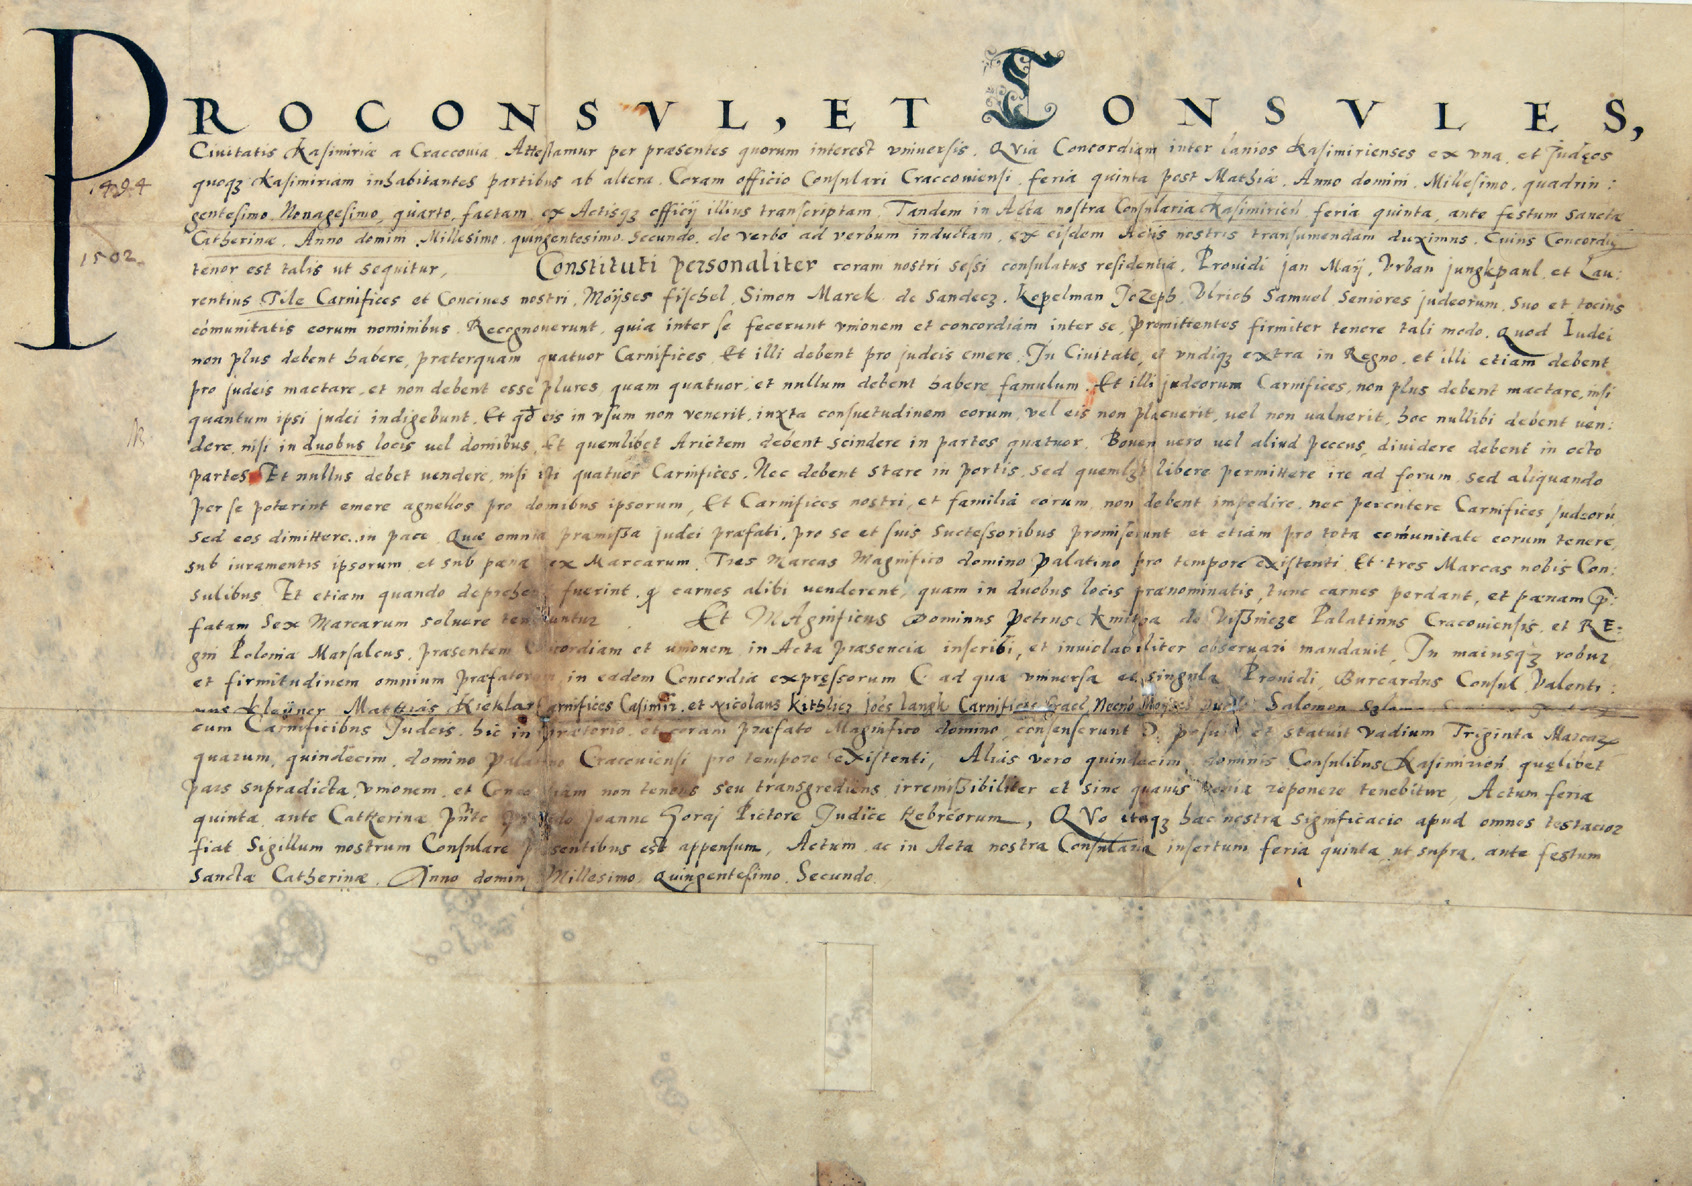 PROCONSVL, ET CONSVLES,
Ciuitatis Kasimiriæ a Craccouia. Attestamur per præsentes quorum interest vniuersis. QVia Concordiam inter lanios Kasimirienses ex vna, et Judęos
1494
quoqȝ Kasimiriam inhabitantes partibus ab altera. Coram officio Consulari Craccouiensi, feria quinta post Mathiæ, Anno domini, Millesimo, quadrin:
gentesimo, Nonagesimo, quarto, factam, ex Actisqȝ officij illius transcriptam, Tandem in Acta nostra Consularia Kasimirien feria quinta, ante festum sanctæ
Catherinæ, Anno domini Millesimo, quingentesimo, Secundo, de verbo ad verbum inductam, ex eisdem Actis nostris transumendam duximus. Cuius Concordię
1502
tenor est talis ut sequitur, Constituti personaliter coram nostri sessi consulatus residentia, Prouidi Jan Maÿ, Vrban Jungkpaul, et Lau:
rentius Tile Carnifices et Conciues nostri, Moÿses fischel, Simon Marek de Sandecz, Kopelman Jozeph, Vlrich Samuel Seniores Judeorum, suo et tocius
cómunitatis eorum nominibus. Recognouerunt, quia inter se fecerunt vnionem et concordiam inter se, promittentes firmiter tenere tali modo, Quod Iudei
non plus debent habere, præterquam quatuor Carnifices, Et illi debent pro judeis emere, In Ciuitate, et vndiqȝ extra in Regno, et illi etiam debent
pro judeis mactare, et non debent esse plures, quam quatuor, et nullum debent habere famulum. Et illi judeorum Carnifices, non plus debent mactare, nisi
quantum ipsi judei indigebunt, Et qd eis in vsum non venerit, iuxta consuetudinem eorum, vel eis non placuerit, uel non ualuerit, hoc nullibi debent uen:
dere, nisi in duobus locis uel domibus, Et quemlibet Arietem debent scindere in partes quatuor, Bouem uero uel aliud peccus, diuidere debent in octo
partes, Et nullus debet uendere, nisi isti quatuor Carnifices. Nec debent stare in portis, sed quemlȝt libere permittere ire ad forum, sed aliquando
per se poterint emere agnellos pro domibus ipsorum, Et Carnifices nostri, et familia eorum, non debent impedire, nec percutere Carnifices Judeorū,
sed eos dimittere in pace, Quæ omnia præmissa judei præfati, pro se et suis successoribus promiserunt et etiam pro tota cómunitate eorum tenere,
sub iuramentis ipsorum, et sub pæna sex Marcarum, Tres Marcas Magnifico domino palatino pro tempore existenti, Et tres Marcas nobis Con:
sulibus, Et etiam quando deprehensi fuerint, q carnes alibi uenderent, quam in duobus locis prænominatis, tunc carnes perdant, et pænam p:
fatam sex Marcarum soluere tenebuntur. Et MAgnificus Dominus Petrus Kmitha de Vißnicze Palatinus Cracouiensis, et RE:
gni Poloniæ Marsalcus, præsentem Concordiam et unionem in Acta præsencia inscribi, et inuiolabiliter obseruari mandauit, In maiusqȝ robur
et firmitudinem omnium præfatorum, in eadem Concordia expręssorum C ad quæ vniuersa et singula Prouidi, Burcardus Consul, Valenti:
nus Kleÿner Matthias Kieklar Carnifices Casimir. et Nicolaus Kithlicz joēs Langk Carnifices Necnō Moÿses Salomon
cum Carnificibus Judeis, hic in prætorio, et coram præfato Magnifico domino, consenserunt posuit et statuit vadium Triginta Marcar
quarum, quindecim, domino Palatino Cracouiensi pro tempore existenti, Alias vero quindecim, dominis Consulibus Kasimirien. quęlibet
pars supradicta, vnionem, et Concordiam non tenens seu transgrediens irremißibiliter et sine quauis venia reponere tenebitur, Actum feria
quinta, ante Catherinæ pñte Joanne Goraj Pictore Judice Hebręorum, QVo itaqȝ hæc nostra significacio apud omnes testacior
fiat Sigillum nostrum Consulare præsentibus est appensum, Actum, ac in Acta nostra Consularia insertum feria quinta, ut supra, ante festum
Sanctæ Catherinæ. Anno domini Millesimo Quingentesimo Secundo.